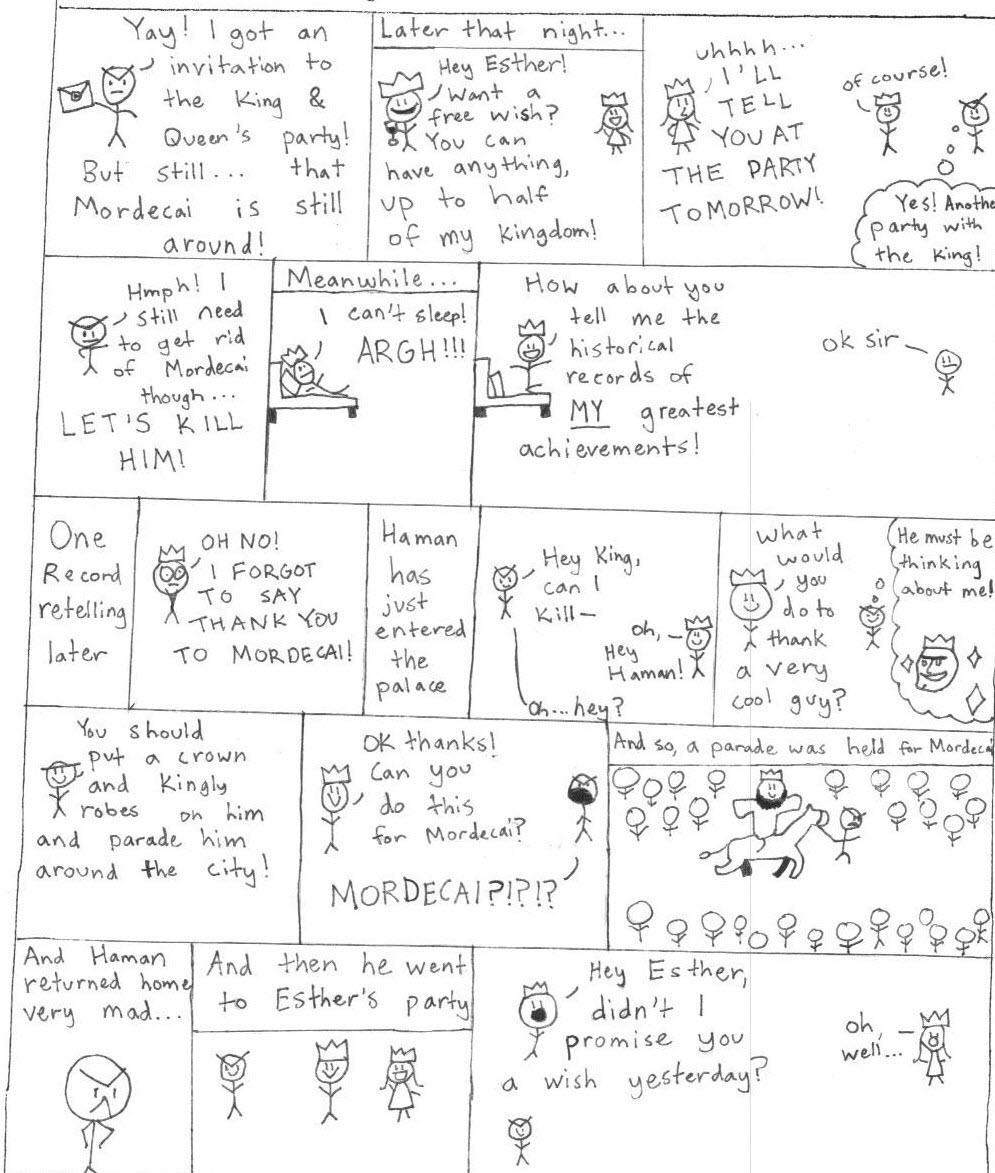 Yay! I got an
invitation to
the King &
Queen's party!
But still... that
Mordecai is still
around!
Later that night...
Hey Esther!
Want a
free wish?
You can
have anything,
up to half
of my kingdom!
uhhhh...
I'LL
TELL
YOU AT
THE PARTY
TOMORROW!
of course!
Yes! Anothe
party with
the King!
Hmph! I
still need
to get rid
of Mordecai
though...
LET'S KILL
HIM!
Meanwhile...
I can't sleep!
ARGH!!!
How about you
tell me the
historical
records of
MY greatest
achievements!
ok sir
One
Record
retelling
later
OH NO!
I FORGOT
TO SAY
THANK YOU
TO MORDECAI!
Haman
has
just
entered
the
palace
Hey King,
can I
kill-
oh,
Hey
Haman!
Oh...hey?
What
would
you
do to
thank
a very
cool guy?
He must be
thinking
about me!
You should
put a crown
and Kingly
robes on him
and parade him
around the city!
OK thanks!
Can you
do this
for Mordecai?
MORDECAI?!?!?
And so, a parade was held for Mordecai
And Haman
returned home
very mad...
And then he went
to Esther's party
Hey Esther,
didn't I
promise you
a wish yesterday?
oh,
well...